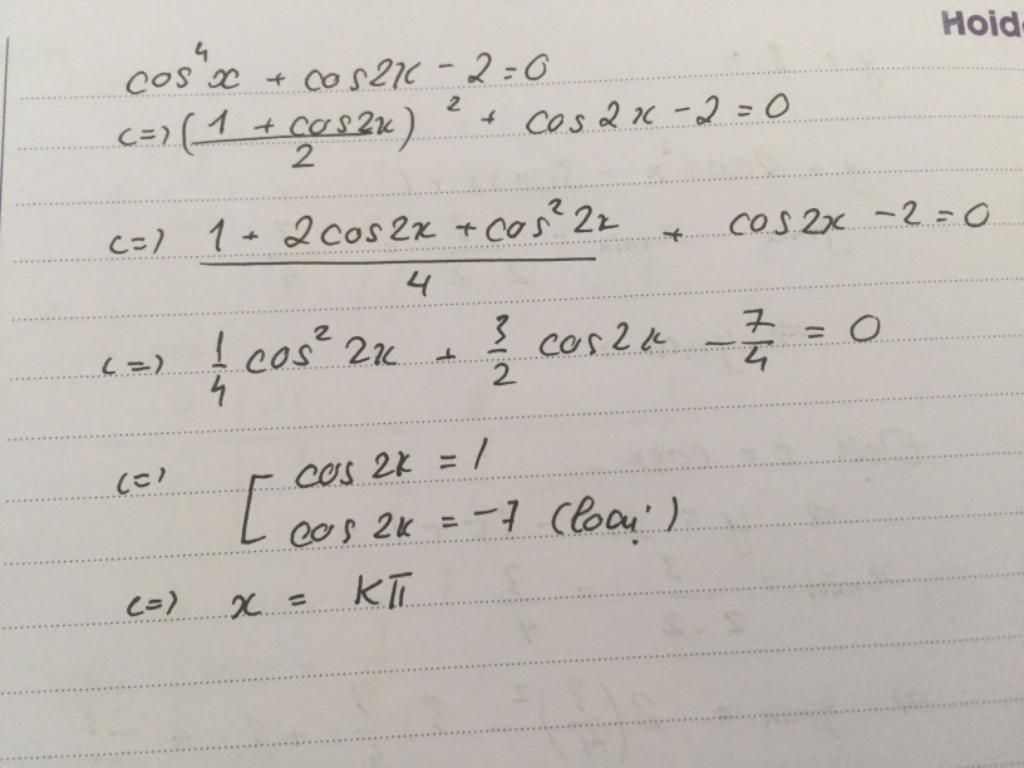 Hoid
cos⁴x + cos2x - 2 = 0
<=> (1 + cos2x / 2)² + cos2x - 2 = 0
<=> 1 + 2cos2x + cos²2x / 4 + cos2x - 2 = 0
<=> 1/4 cos²2x + 3/2 cos2x - 7/4 = 0
<=> [ cos2x = 1
cos2x = -7 (loại)
<=> x = kπ